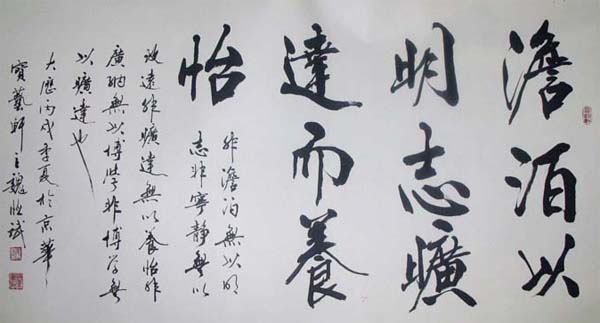 澹泊以
明志曠
達而養
怡
非澹泊無以明
志非寧静無以
致遠非曠達無以養怡非
廣納無以博學非博学無
以曠達也
大歷丙戌季夏於京華
寶藝軒主魏